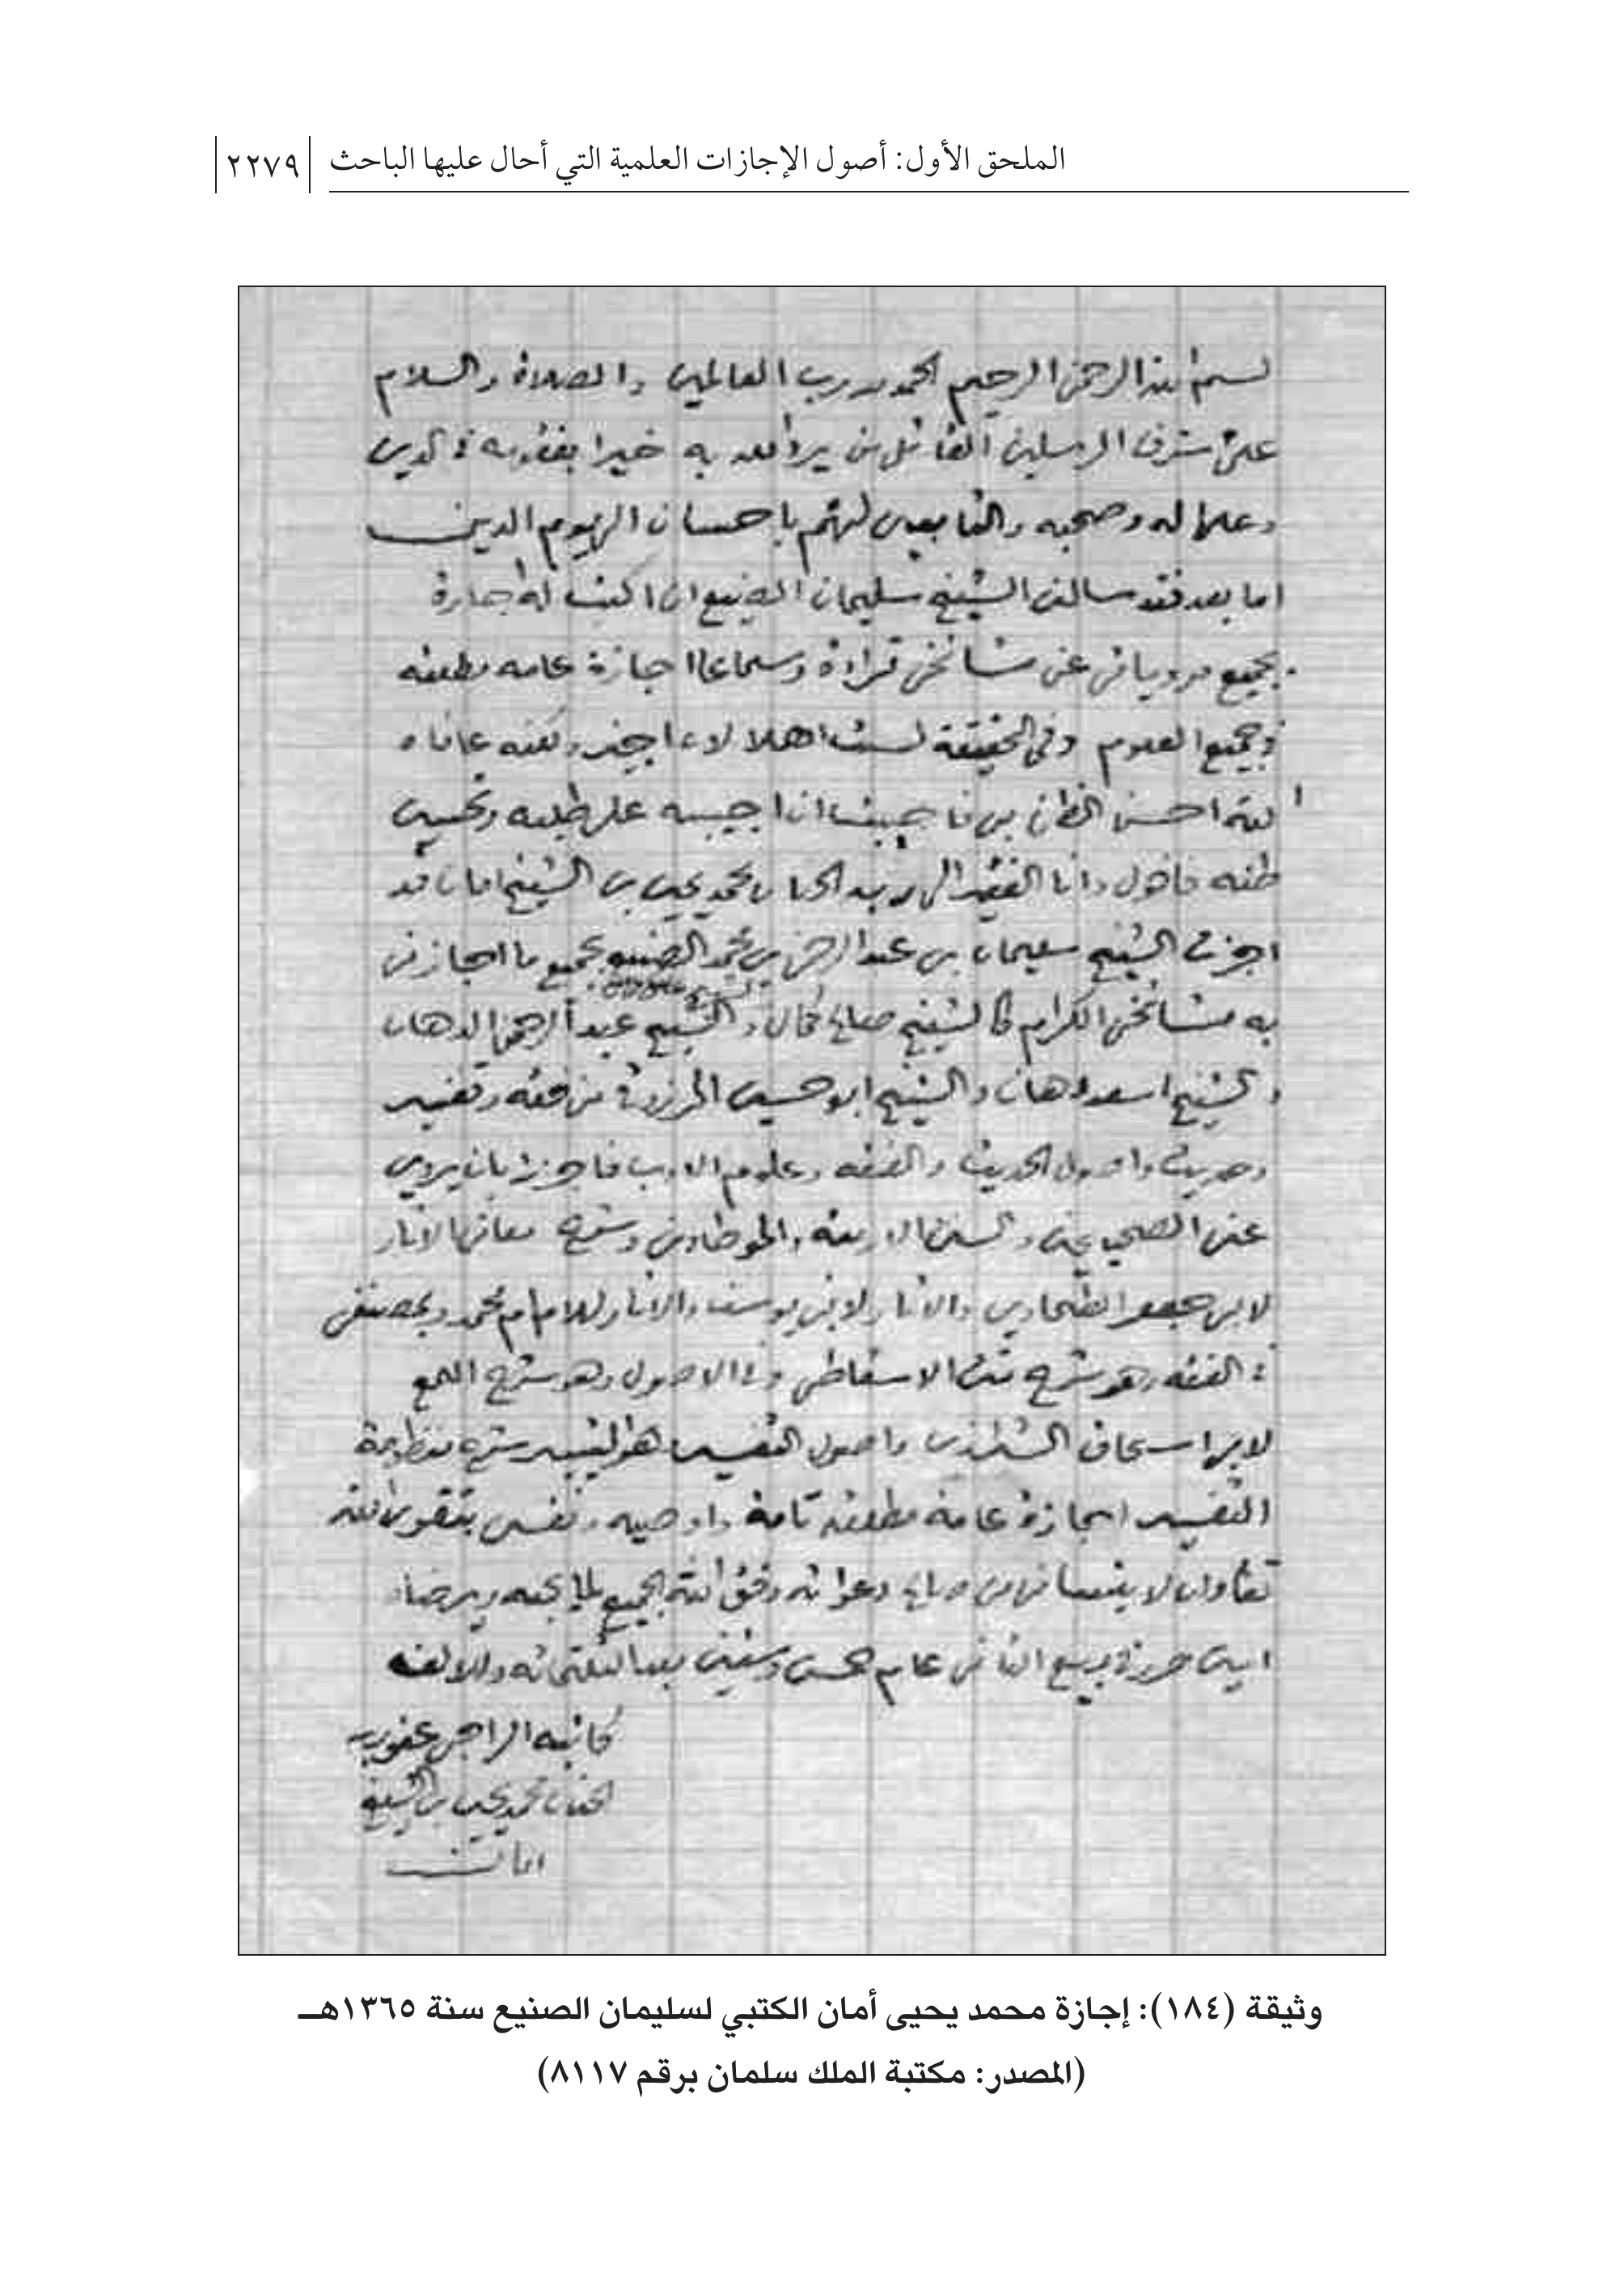 الملحق الأول: أصول الإجازات العلمية التي أحال عليها الباحث ٢٢٧٩
بسم الله الرحمن الرحيم الحمد لله رب العالمين والصلاة والسلام
على أشرف المرسلين القائل من يرد الله به خيرا يفقهه في الدين
وعلى اله وصحبه والتابعين لهم باحسان الى يوم الدين
اما بعد فقد سالني الشيخ سليمان الصنيع ان اكتب له اجازة
بجميع مروياتي عن مشائخي قراءة وسماعا اجازة عامه مطلقه
في جميع العلوم وفي الحقيقة لست اهلا لان اجيز ولكنه عافاه
الله احسن الظن بي فاجبت ان اجيبه على طلبه وتحسين
ظنه فاقول وانا الفقير الى ربه الحنان محمد يحيى بن الشيخ امان قد
اجزت الشيخ سليمان بن عبد الرحمن بن محمد الصنيع بجميع ما اجازني
به مشائخي الكرام كالشيخ صالح كمال والشيخ عبد الرحمن الدهان
والشيخ اسعد دهان والشيخ ابو حسين المرزوقي من فقه وتفسير
وحديث واصول الحديث والفقه وعلوم الادب فاجزت بان يروي
عني الصحيحين والسنن الاربعة والموطاوين وشرح معاني الاثار
لابي جعفر الطحاوي والاثار لابي يوسف والاثار للامام محمد وبمصنفي
في الفقه وهو شرح الاسقاطي وفي الاصول وهو شرح اللمع
لابي اسحاق الشيرازي واصول التفسير هو التيسير شرح منظومة
التفسير اجازة عامة مطلقة تامة واوصيه ونفسي بتقوى الله
تعالى وان لا ينساني من صالح دعواته وفق الله الجميع لما يحبه ويرضاه
امين حرر في ربيع الثاني عام خمس وستين بعد الثلثمائه والالف
كاتبه الراجي عفو ربه
الحنان محمد يحيى بن الشيخ
امان
وثيقة (١٨٤): إجازة محمد يحيى أمان الكتبي لسليمان الصنيع سنة ١٣٦٥هـ
(المصدر: مكتبة الملك سلمان برقم ٨١١٧)